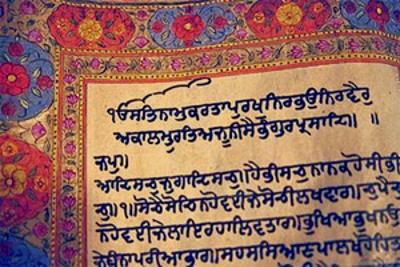 ੴਸਤਿਨਾਮੁਕਰਤਾਪੁਰਖੁਨਿਰਭਉਨਿਰਵੈਰੁ
ਅਕਾਲਮੂਰਤਿਅਜੂਨੀਸੈਭੰਗੁਰਪ੍ਰਸਾਦਿ॥ ॥
ਜਪੁ॥
ਆਦਿਸਚੁਜੁਗਾਦਿਸਚੁ॥ਹੈਭੀਸਚੁਨਾਨਕਹੋਸੀਭੀ
ਚੁ॥੧॥ਸੋਚੈਸੋਚਿਨਹੋਵਈਜੇਸੋਚੀਲਖਵਾਰ॥ਚੁਪੈਚ
ਨਹੋਵਈਜੇਲਾਇਰਹਾਲਿਵਤਾਰ॥ਭੁਖਿਆਭੁਖਨਉ
ਜੇਬੰਨਾਪੁਰੀਆਭਾਰ॥ਸਹਸਸਿਆਣਪਾਲਖਹੋ